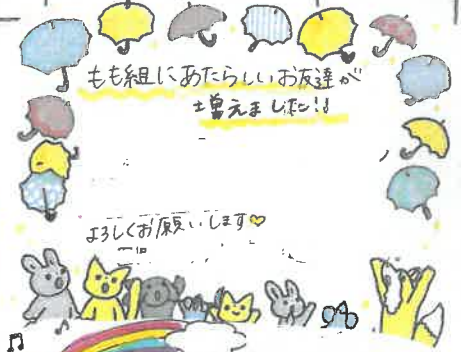 もも組にあたらしいお友達が
増えました!!
よろしくお願いします♡